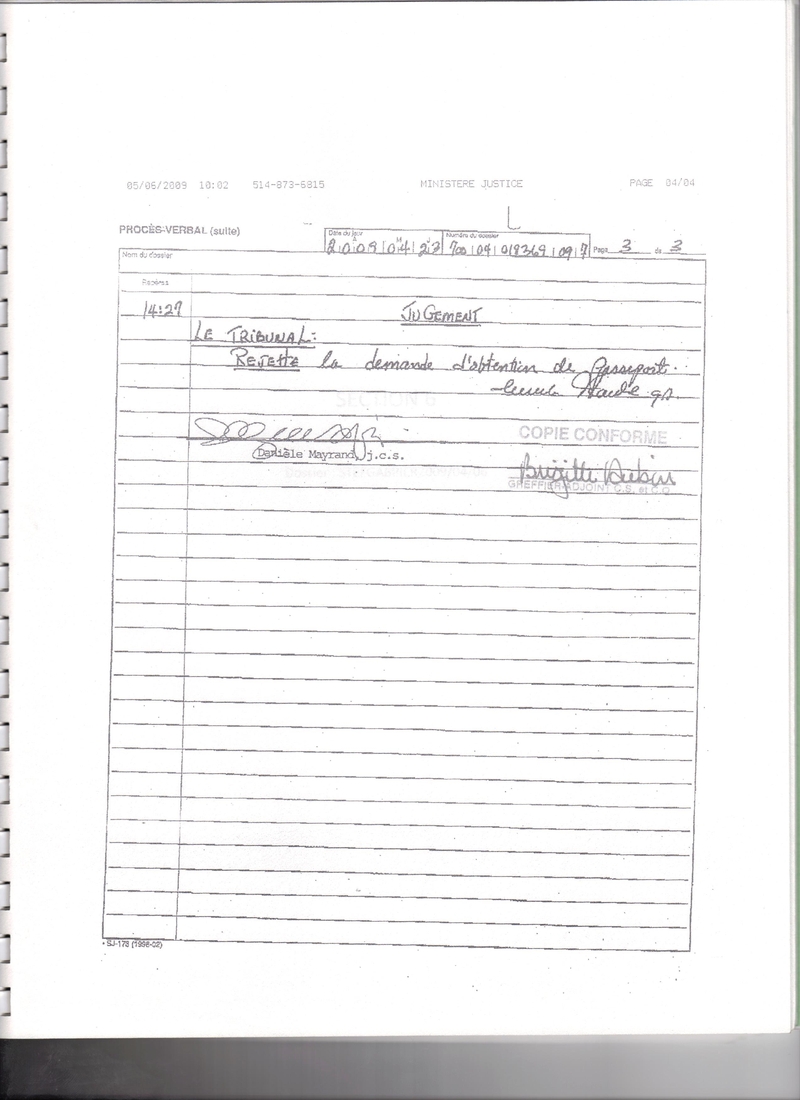 05/06/2009 10:02 514-873-6815 MINISTERE JUSTICE PAGE 04/04
PROCÈS-VERBAL (suite)
Date du jour
Numéro du dossier
A M J
2009 04 23 700 04 018369 097 Page 3 de 3
Nom du dossier
Repères
14:27 JUGEMENT
LE TRIBUNAL:
REJETTE la demande d'obtention de passeport.
SECTION 6
COPIE CONFORME
Danièle Mayrand, j.c.s.
Brigitte Aubin
GREFFIER-ADJOINT C.S. et C.Q.
• SJ-173 (1996-02)